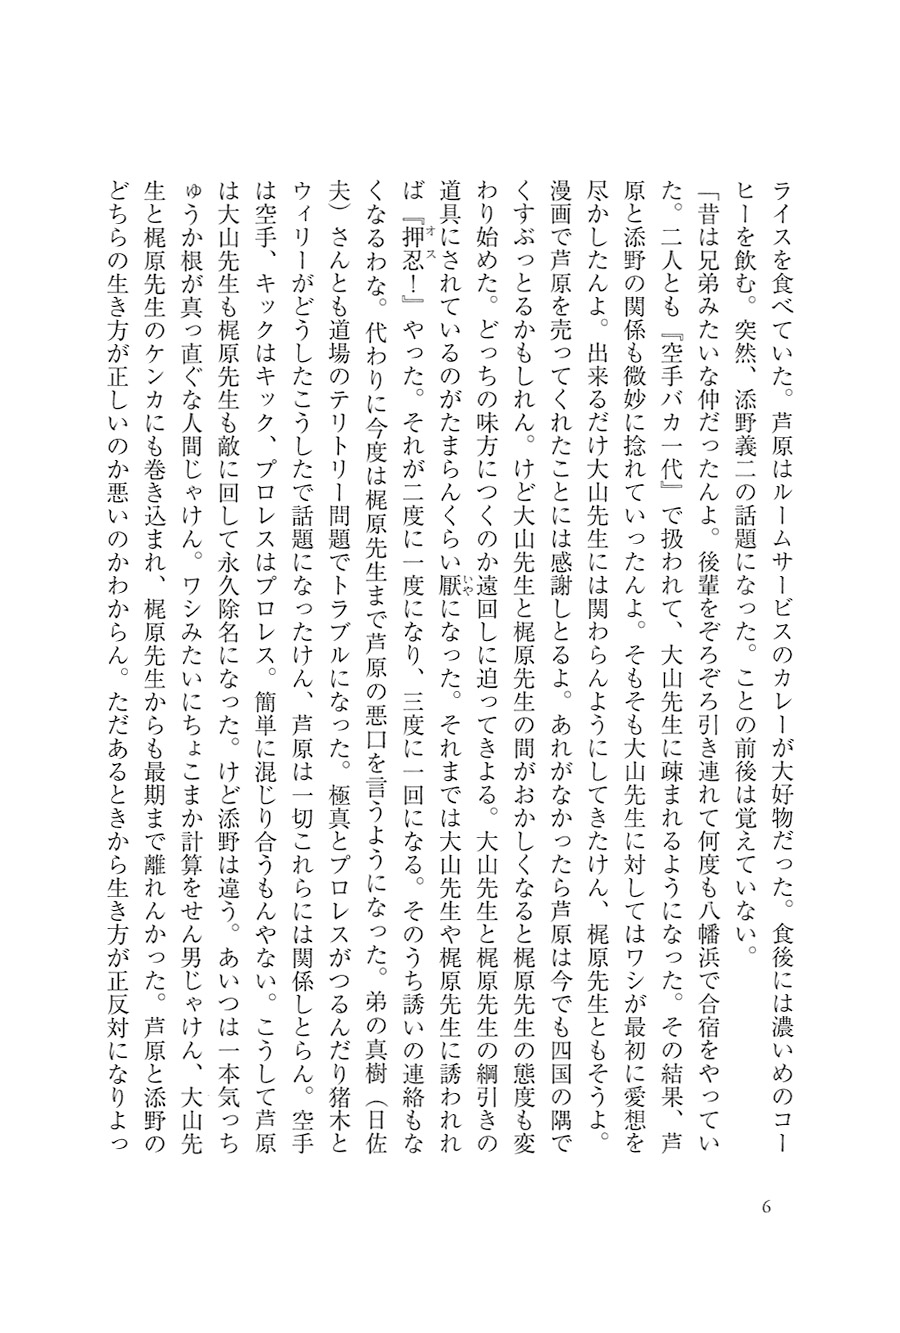 ライスを食べていた。芦原はルームサービスのカレーが大好物だった。食後には濃いめのコー
ヒーを飲む。突然、添野義二の話題になった。ことの前後は覚えていない。
「昔は兄弟みたいな仲だったんよ。後輩をぞろぞろ引き連れて何度も八幡浜で合宿をやってい
た。二人とも『空手バカ一代』で扱われて、大山先生に疎まれるようになった。その結果、芦
原と添野の関係も微妙に捻れていったんよ。そもそも大山先生に対してはワシが最初に愛想を
尽かしたんよ。出来るだけ大山先生には関わらんようにしてきたけん、梶原先生ともそうよ。
漫画で芦原を売ってくれたことには感謝しとるよ。あれがなかったら芦原は今でも四国の隅で
くすぶっとるかもしれん。けど大山先生と梶原先生の間がおかしくなると梶原先生の態度も変
わり始めた。どっちの味方につくのか遠回しに迫ってきよる。大山先生と梶原先生の綱引きの
道具にされているのがたまらんくらい厭いやになった。それまでは大山先生や梶原先生に誘われれ
ば『押忍オス！』やった。それが二度に一度になり、三度に一回になる。そのうち誘いの連絡もな
くなるわな。代わりに今度は梶原先生まで芦原の悪口を言うようになった。弟の真樹（日佐
夫）さんとも道場のテリトリー問題でトラブルになった。極真とプロレスがつるんだり猪木と
ウィリーがどうしたこうしたで話題になったけん、芦原は一切これらには関係しとらん。空手
は空手、キックはキック、プロレスはプロレス。簡単に混じり合うもんやない。こうして芦原
は大山先生も梶原先生も敵に回して永久除名になった。けど添野は違う。あいつは一本気っち
ゅうか根が真っ直ぐな人間じゃけん。ワシみたいにちょこまか計算をせん男じゃけん、大山先
生と梶原先生のケンカにも巻き込まれ、梶原先生からも最期まで離れんかった。芦原と添野の
どちらの生き方が正しいのか悪いのかわからん。ただあるときから生き方が正反対になりよっ
6